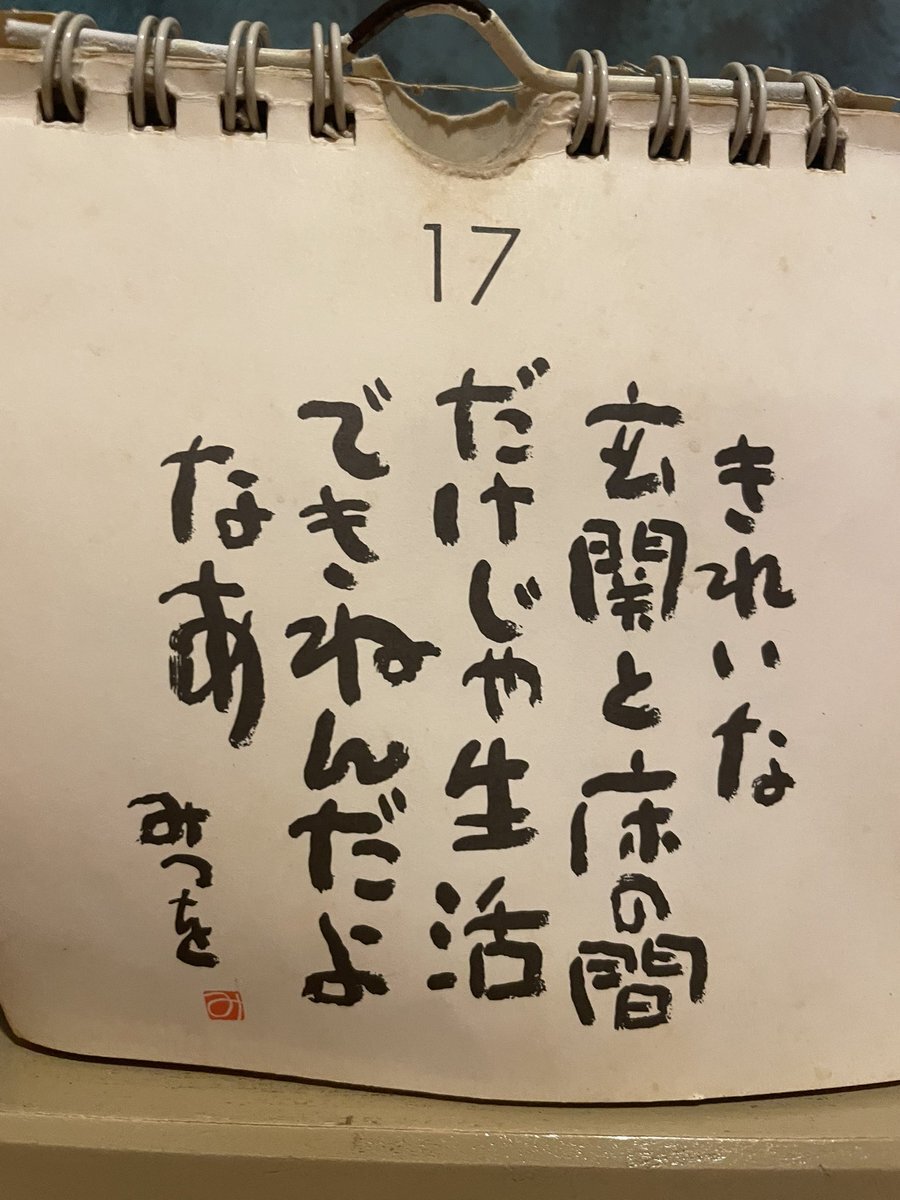 17
きれいな
玄関と床の間
だけじゃ生活
できねんだよ
なあ
みつを
み